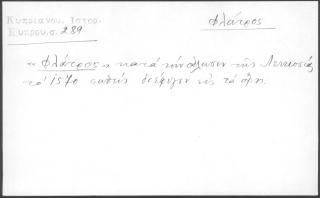 Κυπριανού, Ιστορ.
Κύπρου.σ.289
Φλάτρος
"Φλάτρος" κατά την άλωσιν της Λευκωσίας
τω 1570 σωθείς διέφυγεν εις τα όρη.